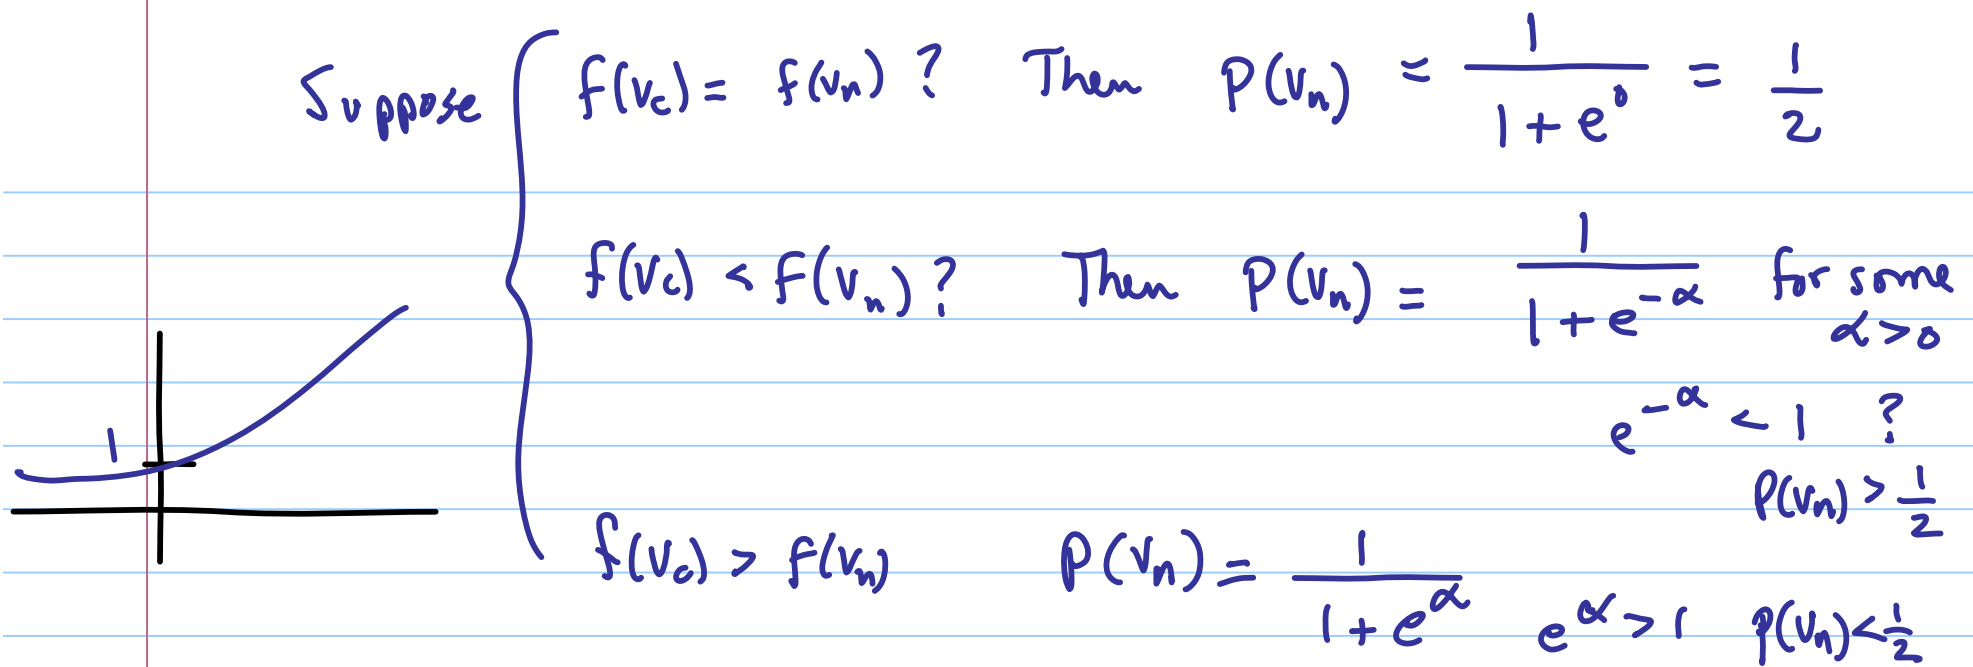 Suppose f(v_c) = f(v_n) ? Then P(v_n) = 1/(1 + e^0) = 1/2
f(v_c) < f(v_n) ? Then P(v_n) = 1/(1 + e^{-α}) for some
α > 0
e^{-α} < 1 ?
1
P(v_n) > 1/2
f(v_c) > f(v_n) P(v_n) = 1/(1 + e^α) e^α > 1 P(v_n) < 1/2